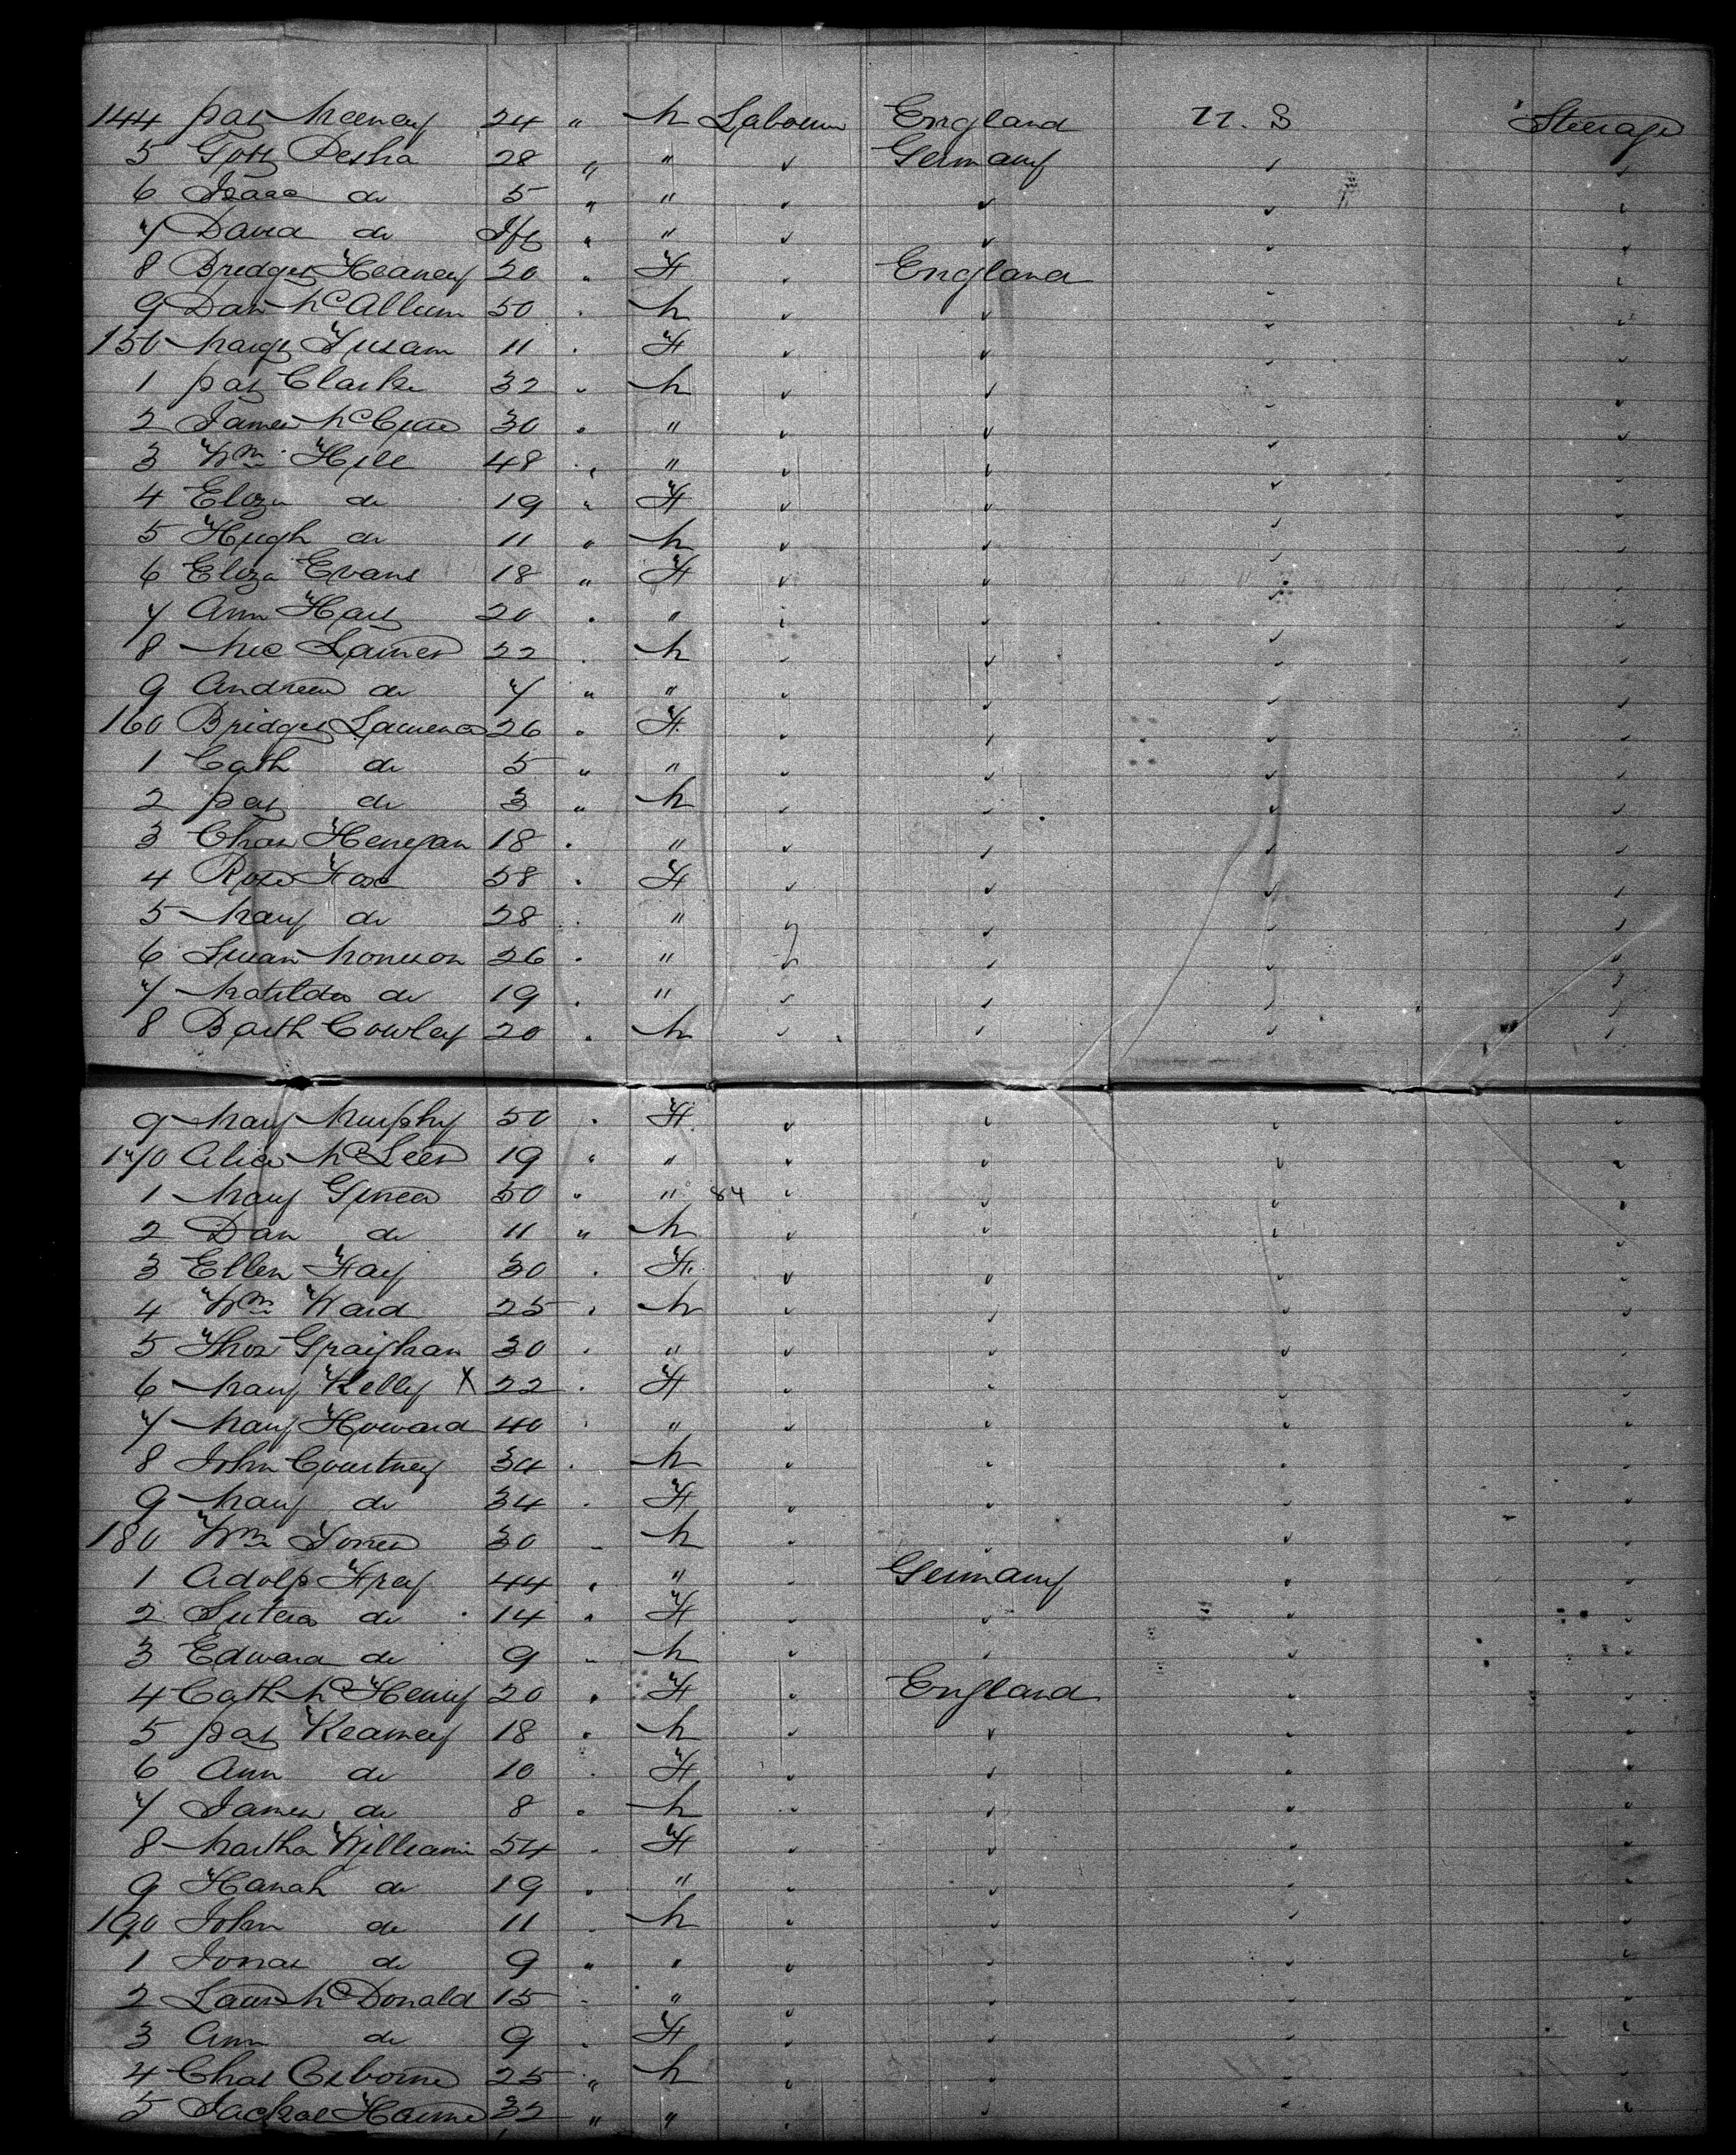 144 Pat Meeney 24 " M Labourer England U. S Steerage
5 Gott Pesha 28 " " ✓ Germany ✓ ✓
6 Isaac do 5 " " ✓ ✓ ✓ ✓
7 David do Inft " " ✓ ✓ ✓ ✓
8 Bridget Heaney 20 " F ✓ England ✓ ✓
9 Dan McAllum 50 " M ✓ ✓ ✓ ✓
150 Margt 11 " F ✓ ✓ ✓ ✓
1 Pat Clarke 32 " M ✓ ✓ ✓ ✓
2 James 30 " " ✓ ✓ ✓ ✓
3 Wm Hill 48 " " ✓ ✓ ✓ ✓
4 Eliza do 19 " F ✓ ✓ ✓ ✓
5 Hugh do 11 " M ✓ ✓ ✓ ✓
6 Eliza Evans 18 " F ✓ ✓ ✓ ✓
7 Ann Hart 20 " " ✓ ✓ ✓ ✓
8 22 " M ✓ ✓ ✓ ✓
9 Andrew do 7 " " ✓ ✓ ✓ ✓
160 Bridget Lawrence 26 " F ✓ ✓ ✓ ✓
1 Cath do 5 " " ✓ ✓ ✓ ✓
2 Pat do 3 " M ✓ ✓ ✓ ✓
3 Chas Henegan 18 " " ✓ ✓ ✓ ✓
4 Rose Fox 58 " F ✓ ✓ ✓ ✓
5 Mary do 28 " " ✓ ✓ ✓ ✓
6 Susan Morrison 26 " " ✓ ✓ ✓ ✓
7 Matilda do 19 " " ✓ ✓ ✓ ✓
8 Barth Cowley 20 " M ✓ ✓ ✓ ✓
9 Mary Murphy 50 " F ✓ ✓ ✓ ✓
170 Alice McLees 19 " " ✓ ✓ ✓ ✓
1 Mary 50 " " 84 ✓ ✓ ✓ ✓
2 Dan do 11 " M ✓ ✓ ✓ ✓
3 Ellen Fay 30 " F ✓ ✓ ✓ ✓
4 Wm Ward 25 " M ✓ ✓ ✓ ✓
5 Thos Graighan 30 " " ✓ ✓ ✓ ✓
6 Mary Kelly X 22 " F ✓ ✓ ✓ ✓
7 Mary Howard 40 " " ✓ ✓ ✓ ✓
8 John Courtney 34 " M ✓ ✓ ✓ ✓
9 Mary do 34 " F ✓ ✓ ✓ ✓
180 Wm Jones 30 " M ✓ ✓ ✓ ✓
1 Adolp Frey 44 " " ✓ Germany ✓ ✓
2 do 14 " F ✓ ✓ ✓ ✓
3 Edward do 9 " M ✓ ✓ ✓ ✓
4 Cath McHenry 20 " F ✓ England ✓ ✓
5 Pat Kearney 18 " M ✓ ✓ ✓ ✓
6 Ann do 10 " F ✓ ✓ ✓ ✓
7 James do 8 " M ✓ ✓ ✓ ✓
8 Martha Williams 54 " F ✓ ✓ ✓ ✓
9 Hanah do 19 " " ✓ ✓ ✓ ✓
190 John do 11 " M ✓ ✓ ✓ ✓
1 Jonas do 9 " " ✓ ✓ ✓ ✓
2 Lawr McDonald 15 " " ✓ ✓ ✓ ✓
3 Ann do 9 " F ✓ ✓ ✓ ✓
4 Chas Osborne 25 " M ✓ ✓ ✓ ✓
5 32 " " ✓ ✓ ✓ ✓